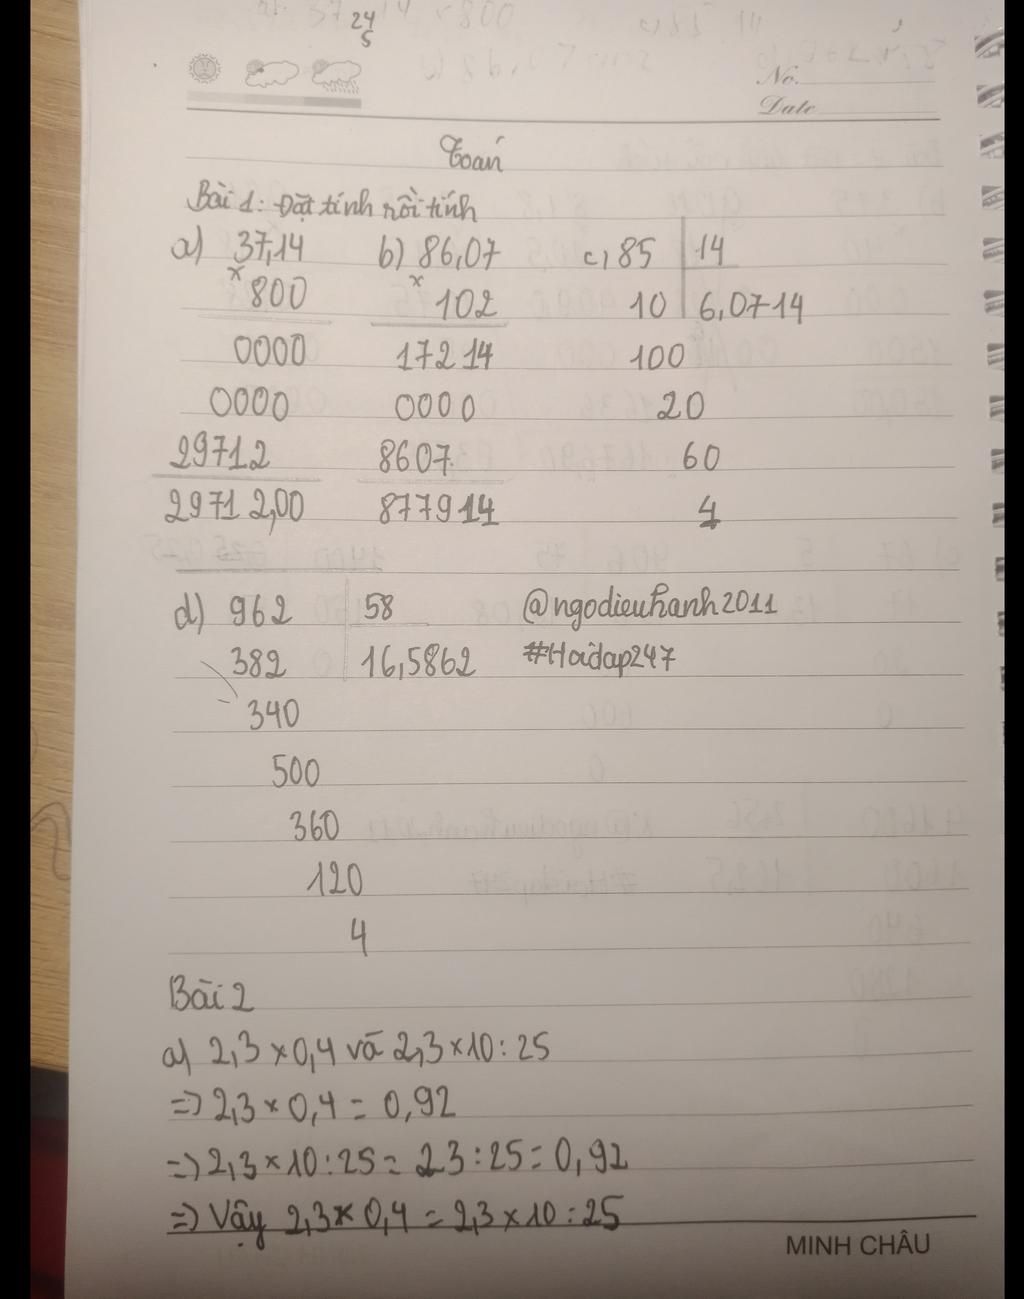 24
5
No.
Date
Toán
Bài 1: Đặt tính rồi tính
a) 37,14 b) 86,07 c, 85 14
x 800 x 102 10 6,0714
0000 17214 100
0000 0000 20
29712 8607 60
29712,00 877914 4
d) 962 58 @ngodieuhanh2011
382 16,5862 #Hoidap247
340
500
360
120
4
Bài 2
a) 2,3 x 0,4 và 2,3 x 10 : 25
=> 2,3 x 0,4 = 0,92
=> 2,3 x 10 : 25 = 23 : 25 = 0,92
=> Vậy 2,3 x 0,4 = 2,3 x 10 : 25
MINH CHÂU